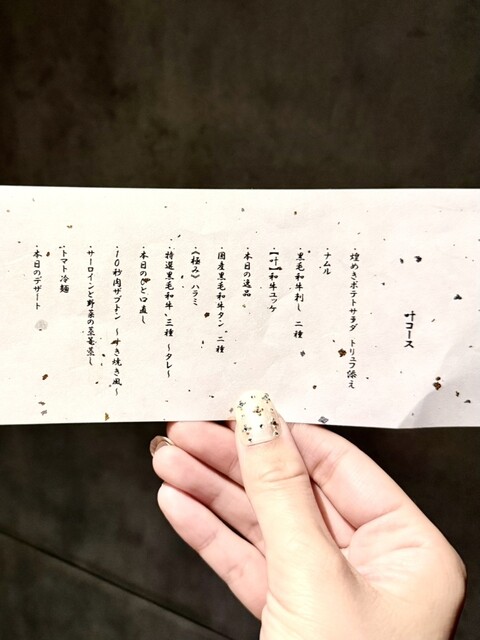 叶コース
・煌めきポテトサラダ トリュフ添え
・ナムル
・黒毛和牛刺し 二種
・【叶】和牛ユッケ
・本日の逸品
・国産黒毛和牛タン 二種
・《極み》ハラミ
・特選黒毛和牛 三種 〜タレ〜
・本日のひと口直し
・10秒肉ザブトン 〜すき焼き風〜
・サーロインと野菜の茎茎蒸し
・トマト冷麺
・本日のデザート